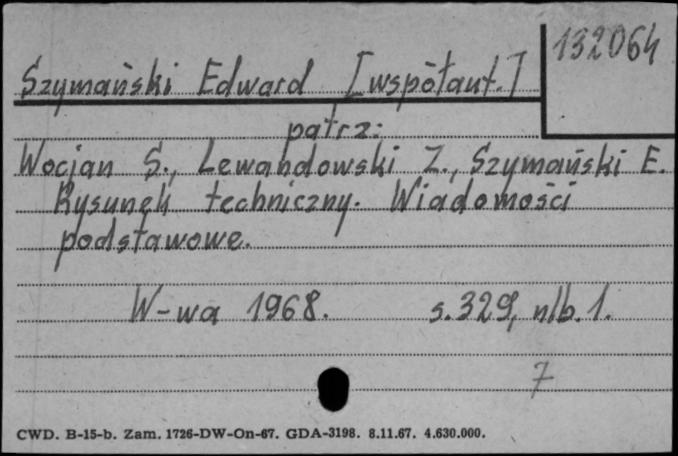 132064
Szymański Edward [współaut.]
patrz:
Wocjan S., Lewandowski Z., Szymański E.
Rysunek techniczny. Wiadomości
podstawowe.
W-wa 1968. s. 329, nlb. 1.
7
CWD. B-15-b. Zam. 1726-DW-On-67. GDA-3198. 8.11.67. 4.630.000.